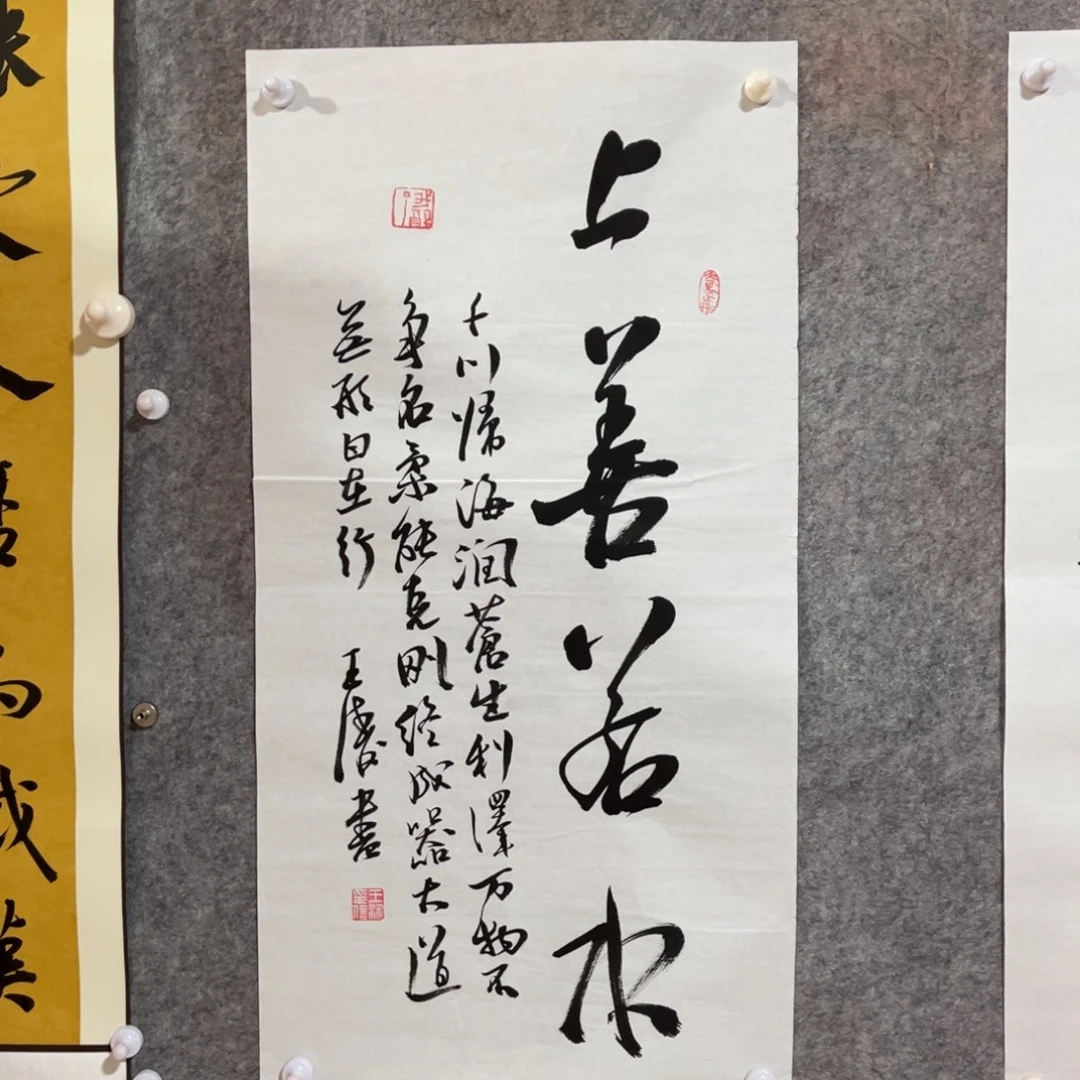 上善若水
千川归海润苍生利泽万物不
争名柔能克刚终成器大道
无形日在行
王涛书